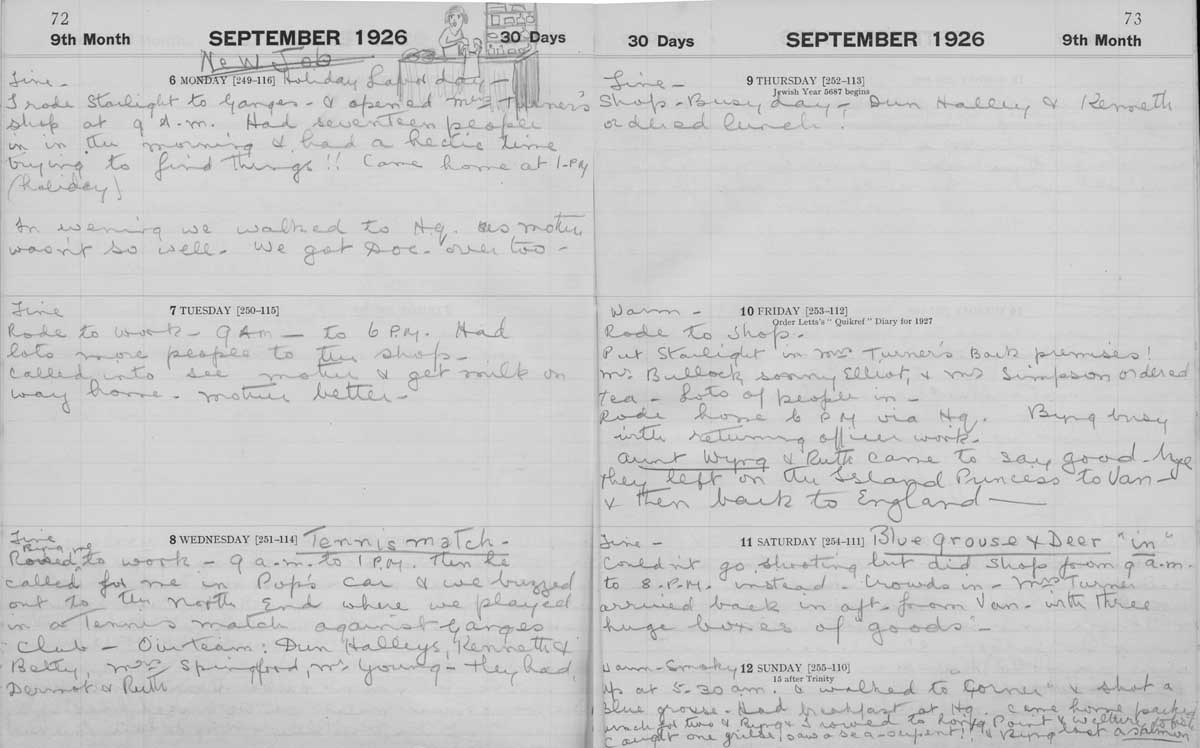 72
9th Month
SEPTEMBER 1926
30 Days
New Job
Fine - 6 MONDAY [249-116] Holiday Labor day -
I rode Starlight to Ganges - & opened Mrs Turner's
shop at 9 a.m. Had seventeen people
in in the morning & had a hectic time
trying to find things!! Came home at 1-PM
(holiday)
In evening we walked to Hq. as mother
wasn't so well. We got Doc. over too -
Fine 7 TUESDAY [250-115]
Rode to work - 9 AM - to 6 P.M. Had
lots more people to the shop -
called into see mother & get milk on
way home - mother better -
Fine 8 WEDNESDAY [251-114] Tennis match -
Byng me
Rowed to work - 9 a.m. to 1 P.M. Then he
called for me in Pop's car & we buzzed
out to the North End where we played
in a Tennis match against Ganges
Club - Our team: Dun Halleys, Kenneth &
Betty, Mrs Springford, Mr Young - they had
Dermot & Ruth
73
30 Days
SEPTEMBER 1926
9th Month
Fine - 9 THURSDAY [252-113]
Jewish Year 5687 begins
Shop - Busy day - Dun Halley & Kenneth
ordered lunch!
Warm - 10 FRIDAY [253-112]
Order Letts's "Quikref" Diary for 1927
Rode to shop -
Put Starlight in Mrs Turner's Back premises!
Mr Bullock, sonny Elliot, & Mrs Simpson ordered
tea - Lots of people in -
Rode home 6 PM via Hq. Byng busy
with returning officer work -
Aunt Wyng & Ruth came to say good-bye
they left on the Island Princess to Van -
& then back to England -
Fine - 11 SATURDAY [254-111] Blue grouse & Deer "in"
Couldn't go shooting but did shop from 9 a.m.
to 8.P.M. instead. Crowds in - Mrs Turner
arrived back in aft. from Van - with three
huge boxes of goods -
Warm - Smoky 12 SUNDAY [255-110]
15 after Trinity
Up at 5-30 am. & walked to "Corner" & shot a
blue grouse - Had breakfast at Hq. came home packed
lunch for two & Byng & I rowed to Point &
caught one grilse, saw a sea-serpent!! & Byng lost a salmon